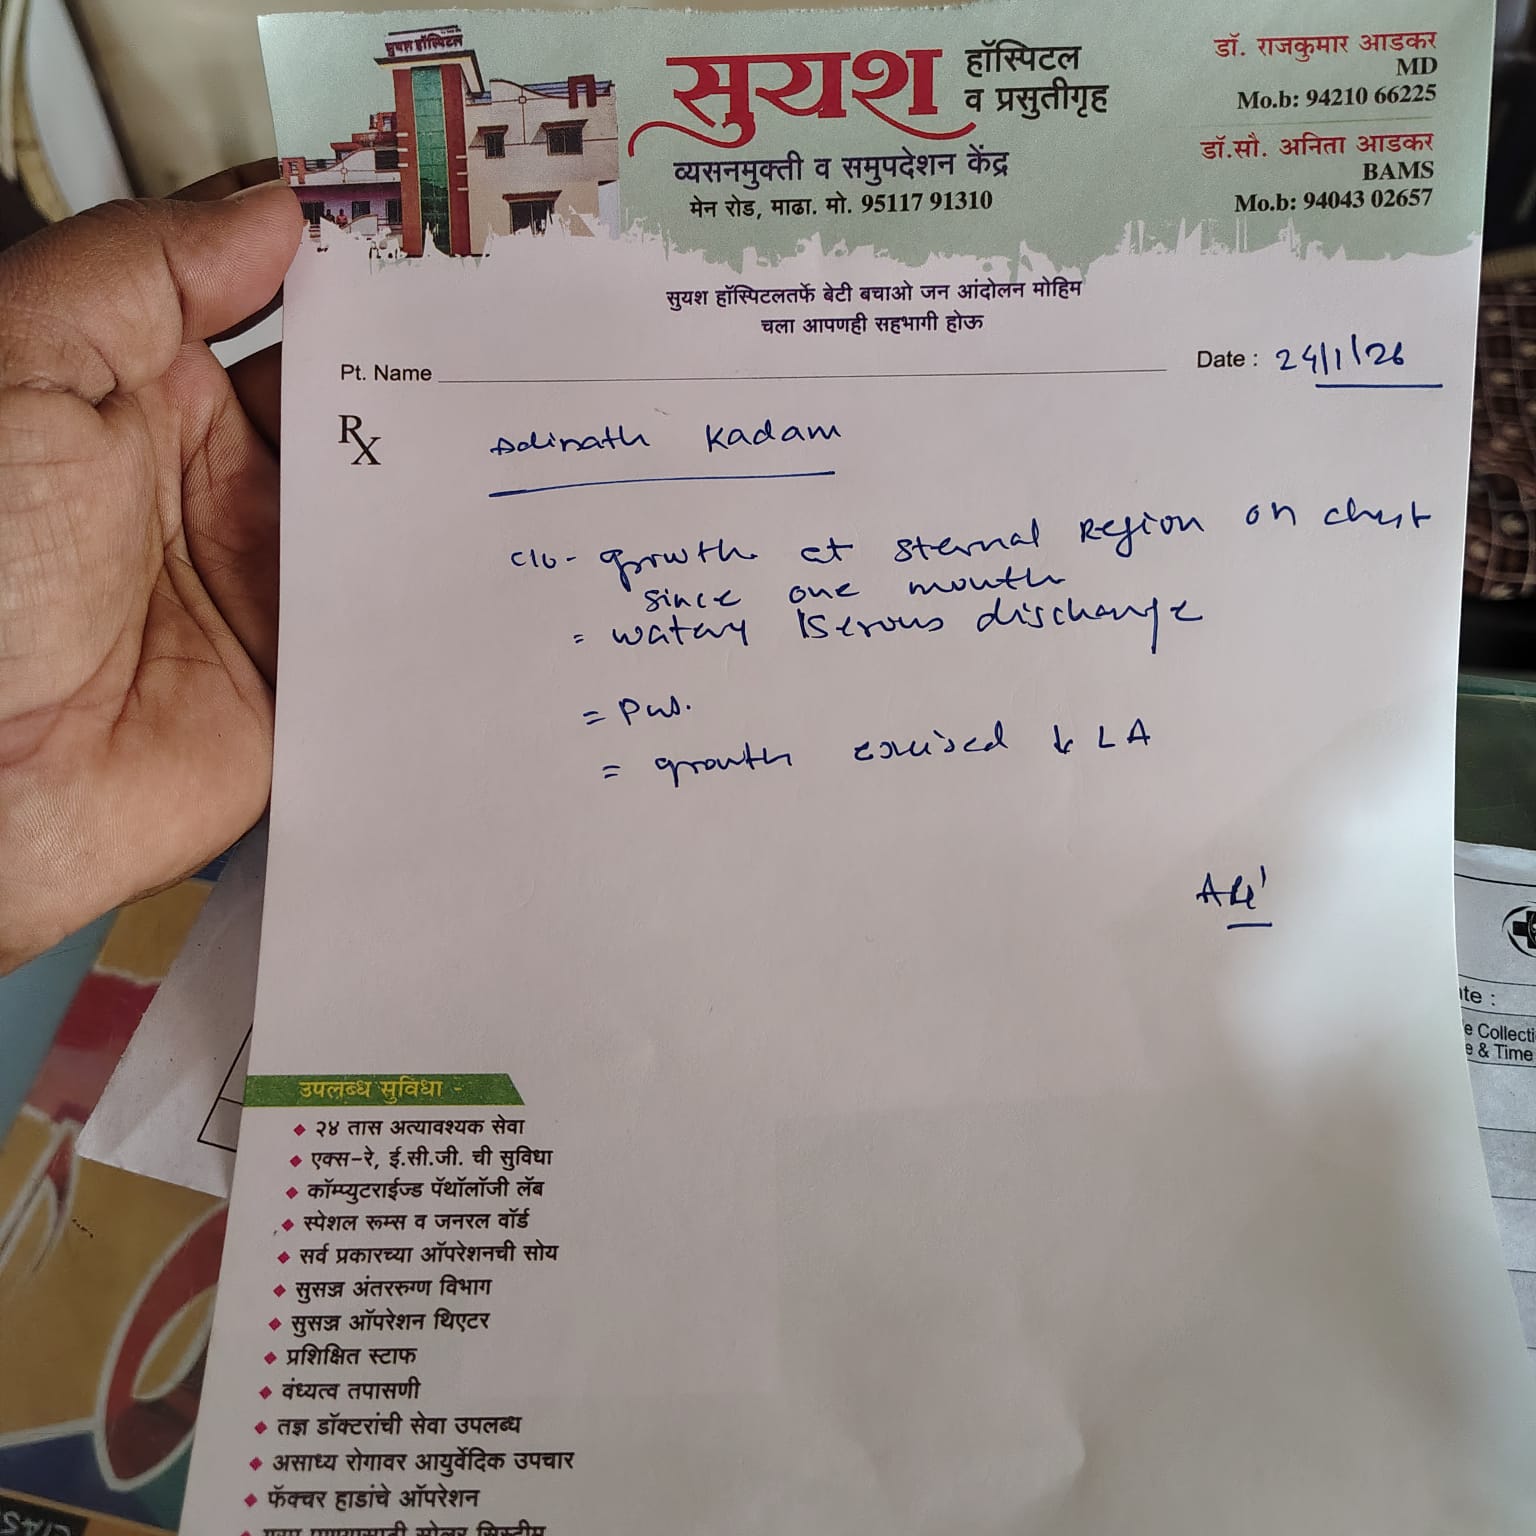 सुयश हॉस्पिटल
सुयश हॉस्पिटल
व प्रसुतीगृह
व्यसनमुक्ती व समुपदेशन केंद्र
मेन रोड, माढा. मो. 95117 91310
डॉ. राजकुमार आडकर
MD
Mo.b: 94210 66225
डॉ.सौ. अनिता आडकर
BAMS
Mo.b: 94043 02657
सुयश हॉस्पिटलतर्फे बेटी बचाओ जन आंदोलन मोहिम
चला आपणही सहभागी होऊ
Pt. Name
Date : 24/1/26
Rx
Adinath Kadam
c/o - growth at sternal Region on chest
since one month
= watery /serous discharge
= Pus.
= growth excised ↓ LA
उपलब्ध सुविधा -
२४ तास अत्यावश्यक सेवा
एक्स-रे, ई.सी.जी. ची सुविधा
कॉम्प्युटराईज्ड पॅथॉलॉजी लॅब
स्पेशल रूम्स व जनरल वॉर्ड
सर्व प्रकारच्या ऑपरेशनची सोय
सुसज्ज अंतररुग्ण विभाग
सुसज्ज ऑपरेशन थिएटर
प्रशिक्षित स्टाफ
वंध्यत्व तपासणी
तज्ञ डॉक्टरांची सेवा उपलब्ध
असाध्य रोगावर आयुर्वेदिक उपचार
फॅक्चर हाडांचे ऑपरेशन
ate :
e Collecti
e & Time